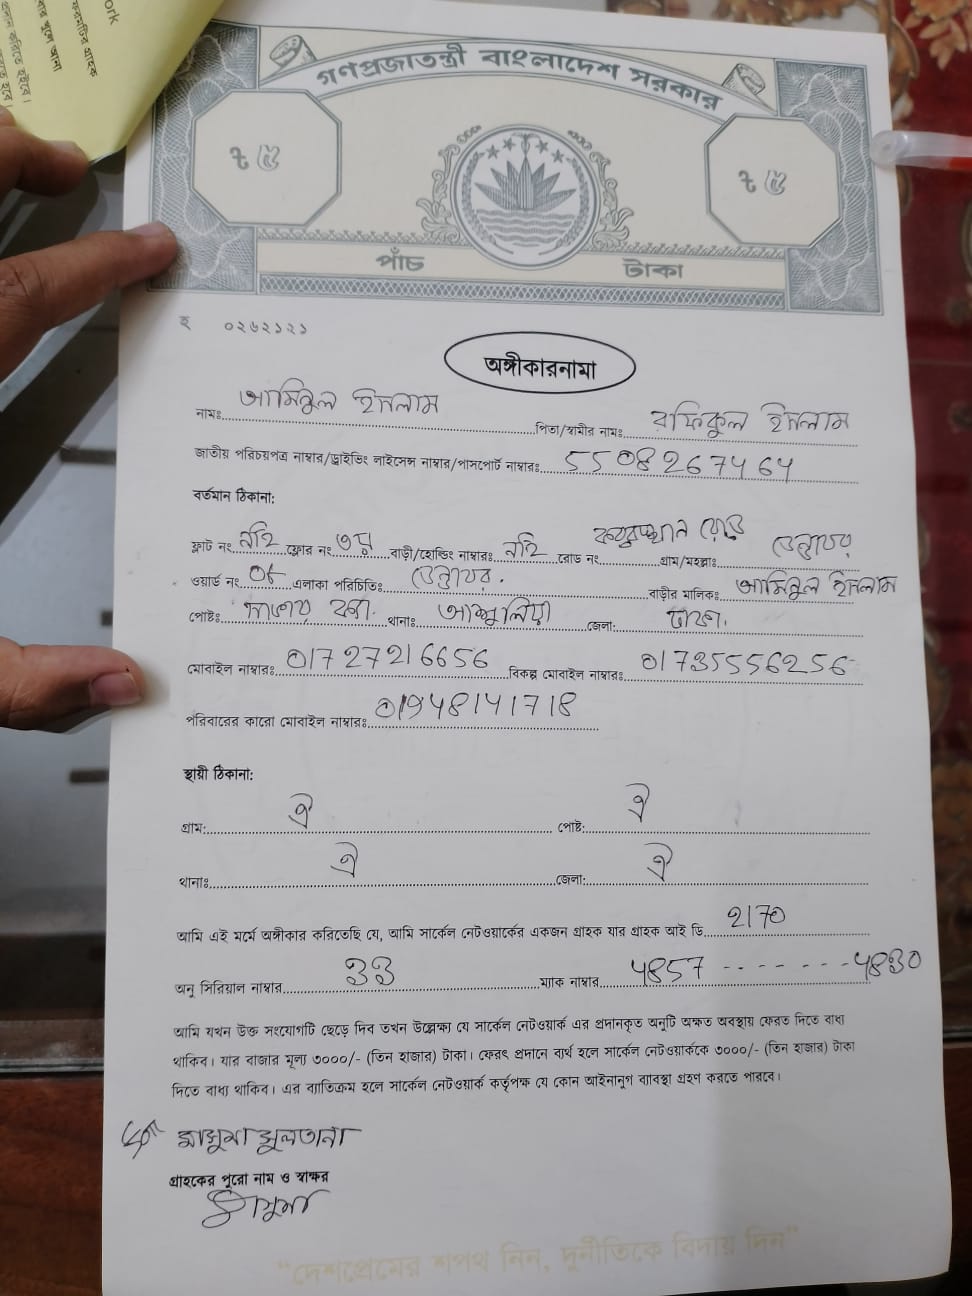 গণপ্রজাতন্ত্রী বাংলাদেশ সরকার
৳ ৫ ৳ ৫
পাঁচ টাকা
২ ০২৬২১২১
অঙ্গীকারনামা
নামঃ আমিনুল ইসলাম পিতা/স্বামীর নামঃ রফিকুল ইসলাম
জাতীয় পরিচয়পত্র নাম্বার/ড্রাইভিং লাইসেন্স নাম্বার/পাসপোর্ট নাম্বারঃ 5508267464
বর্তমান ঠিকানা:
ফ্লাট নং নাই ফ্লোর নং ৩য় বাড়ী/হোল্ডিং নাম্বারঃ নাই রোড নং রোড গ্রাম/মহল্লাঃ
ওয়ার্ড নং 06 এলাকা পরিচিতিঃ বাড়ীর মালিকঃ আমিনুল ইসলাম
পোষ্টঃ থানাঃ আশুলিয়া জেলা: ঢাকা.
মোবাইল নাম্বারঃ 01727216656 বিকল্প মোবাইল নাম্বারঃ 01735556256
পরিবারের কারো মোবাইল নাম্বারঃ 01948141718
স্থায়ী ঠিকানা:
গ্রাম: ঐ পোষ্ট: ঐ
থানাঃ ঐ জেলা: ঐ
আমি এই মর্মে অঙ্গীকার করিতেছি যে, আমি সার্কেল নেটওয়ার্কের একজন গ্রাহক যার গ্রাহক আই ডি 2170
অনু সিরিয়াল নাম্বার 33 ম্যাক নাম্বার 4857 - - - - - - - 4830
আমি যখন উক্ত সংযোগটি ছেড়ে দিব তখন উল্লেক্ষ্য যে সার্কেল নেটওয়ার্ক এর প্রদানকৃত অনুটি অক্ষত অবস্থায় ফেরত দিতে বাধ্য
থাকিব। যার বাজার মূল্য ৩০০০/- (তিন হাজার) টাকা। ফেরৎ প্রদানে ব্যর্থ হলে সার্কেল নেটওয়ার্ককে ৩০০০/- (তিন হাজার) টাকা
দিতে বাধ্য থাকিব। এর ব্যাতিক্রম হলে সার্কেল নেটওয়ার্ক কর্তৃপক্ষ যে কোন আইনানুগ ব্যাবস্থা গ্রহণ করতে পারবে।
মাসুমা সুলতানা
গ্রাহকের পুরো নাম ও স্বাক্ষর
মাসুমা
"দেশপ্রেমের শপথ নিন, দুর্নীতিকে বিদায় দিন"